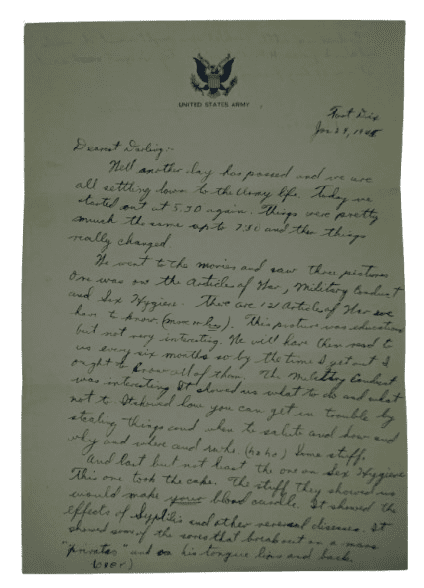 UNITED STATES ARMY
Fort Dix
Jan 29, 1945
Dearest Darling:-
Well another day has passed and we are
all settling down to the Army life. Today we
started out at 5.30 again. Things were pretty
much the same up to 7:30 and then things
really changed.
We went to the movies and saw three pictures
One was on the Articles of War, Military Conduct
and Sex Hygiene. There are 121 Articles of War we
have to know (more or less). This picture was educational
but not very interesting. We will have them read to
us every six months so by the time I get out I
ought to know all of them. The Military Conduct
was interesting. It showed us what to do and what
not to. It showed how you can get in trouble by
stealing things and when to salute and how and
why and where and (ha ha) Some stuff.
And last but not least the one on Sex Hygiene
This one took the cake. The stuff they showed us
would make your blood curdle. It showed the
effects of Syphilis and other venereal diseases. It
showed some of the sores that breakout on a mans
"privates" and on his tongue lips and back.
(over)